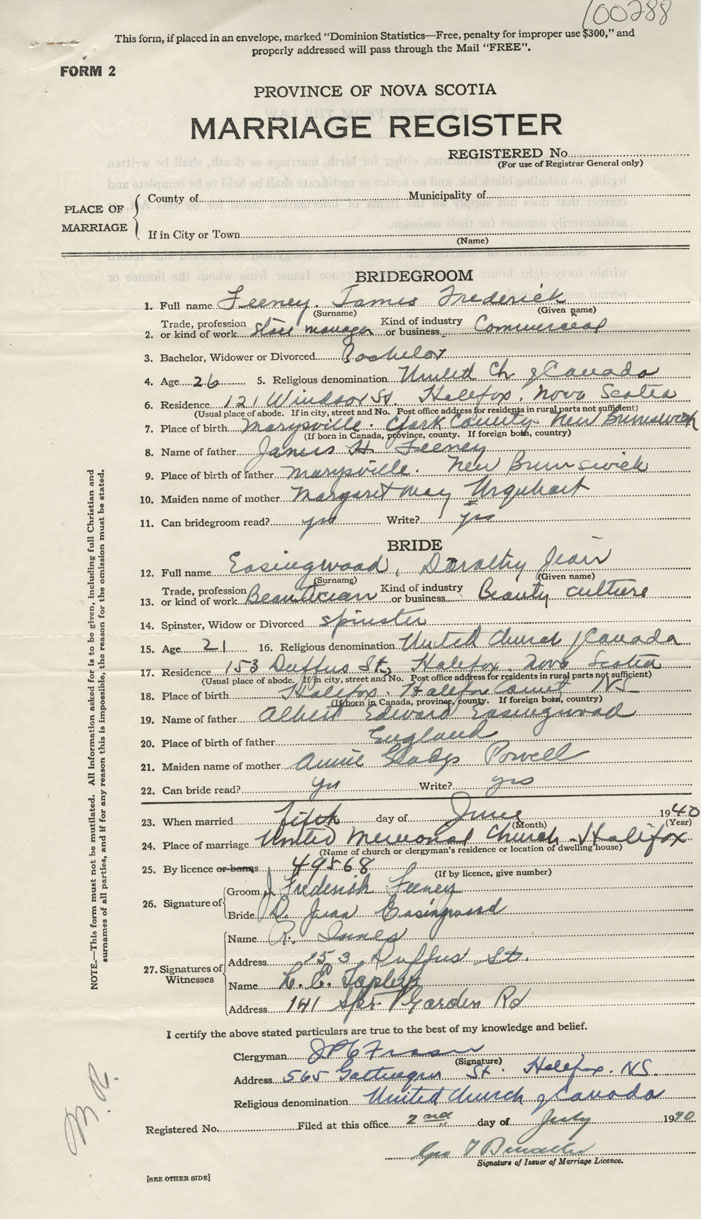 100288
This form, if placed in an envelope, marked "Dominion Statistics—Free, penalty for improper use $300," and
properly addressed will pass through the Mail "FREE".
FORM 2
PROVINCE OF NOVA SCOTIA
MARRIAGE REGISTER
REGISTERED No.
(For use of Registrar General only)
PLACE OF MARRIAGE
County of Municipality of
If in City or Town
(Name)
BRIDEGROOM
1. Full name Feeney. James Frederick
(Surname) (Given name)
2. Trade, profession or kind of work Store manager Kind of industry or business Commercial
3. Bachelor, Widower or Divorced Bachelor
4. Age 26 5. Religious denomination United Ch. of Canada
6. Residence 121 Windsor St. Halifax. Nova Scotia
(Usual place of abode. If in city, street and No. Post office address for residents in rural parts not sufficient)
7. Place of birth Marysville. County New Brunswick
(If born in Canada, province, county. If foreign born, country)
8. Name of father James H. Feeney
9. Place of birth of father Marysville. New Brunswick
10. Maiden name of mother Margaret May Urquhart
11. Can bridegroom read? yes Write? yes
BRIDE
12. Full name Easingwood, Dorothy Jean
(Surname) (Given name)
13. Trade, profession or kind of work Beautician Kind of industry or business Beauty culture
14. Spinster, Widow or Divorced spinster
15. Age 21 16. Religious denomination United Church of Canada
17. Residence 153 Duffus St, Halifax. Nova Scotia
(Usual place of abode. If in city, street and No. Post office address for residents in rural parts not sufficient)
18. Place of birth Halifax. Halifax County NS
(If born in Canada, province, county. If foreign born, country)
19. Name of father Albert Edward Easingwood
20. Place of birth of father England
21. Maiden name of mother Annie Gladys Powell
22. Can bride read? yes Write? yes
23. When married Fifth day of June 1940
(Month) (Year)
24. Place of marriage United Memorial Church - Halifax
(Name of church or clergyman's residence or location of dwelling house)
25. By licence or banns 49568 (If by licence, give number)
26. Signature of
Groom J Frederick Feeney
Bride D. Jean Easingwood
27. Signatures of Witnesses
Name R. Innes
Address 153 Duffus St.
Name
Address 141 Spr. Garden Rd
I certify the above stated particulars are true to the best of my knowledge and belief.
Clergyman
(Signature)
Address 565 Gottingen St. Halifax. NS.
Religious denomination United Church of Canada
Registered No. Filed at this office 2nd day of July 1940
Signature of Issuer of Marriage Licence.
[SEE OTHER SIDE]
NOTE.—This form must not be mutilated. All information asked for is to be given, including full Christian and
surnames of all parties, and if for any reason this is impossible, the reason for the omission must be stated.